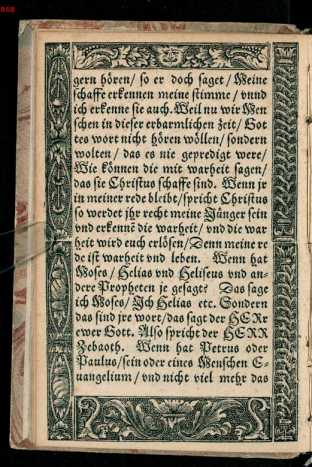 gern hören/ so er doch saget/ Meine
schaffe erkennen meine stimme / vnnd
ich erkenne sie auch. Weil nu wir Men
schen in dieser erbarmlichen zeit/ Got
tes wort nicht hören wöllen/ sondern
wolten / das es nie gepredigt were/
Wie können die mit warheit sagen/
das sie Christus schaffe sind. Wenn jr
in meiner rede bleibt/ spricht Christus
so werdet jhr recht meine Jünger sein
vnd erkennẽ die warheit/ vnd die war
heit wird euch erlösen/ Denn meine re
de ist warheit vnd leben. Wenn hat
Moses / Helias vnd Heliseus vnd an-
dere Propheten je gesagt? Das sage
ich Moses/ Ich Helias etc. Sondern
das sind jre wort/ das sagt der HERr
ewer Gott. Also spricht der HERR
Zebaoth. Wenn hat Petrus oder
Paulus/ sein oder eines Menschen E-
uangelium / vnd nicht viel mehr das